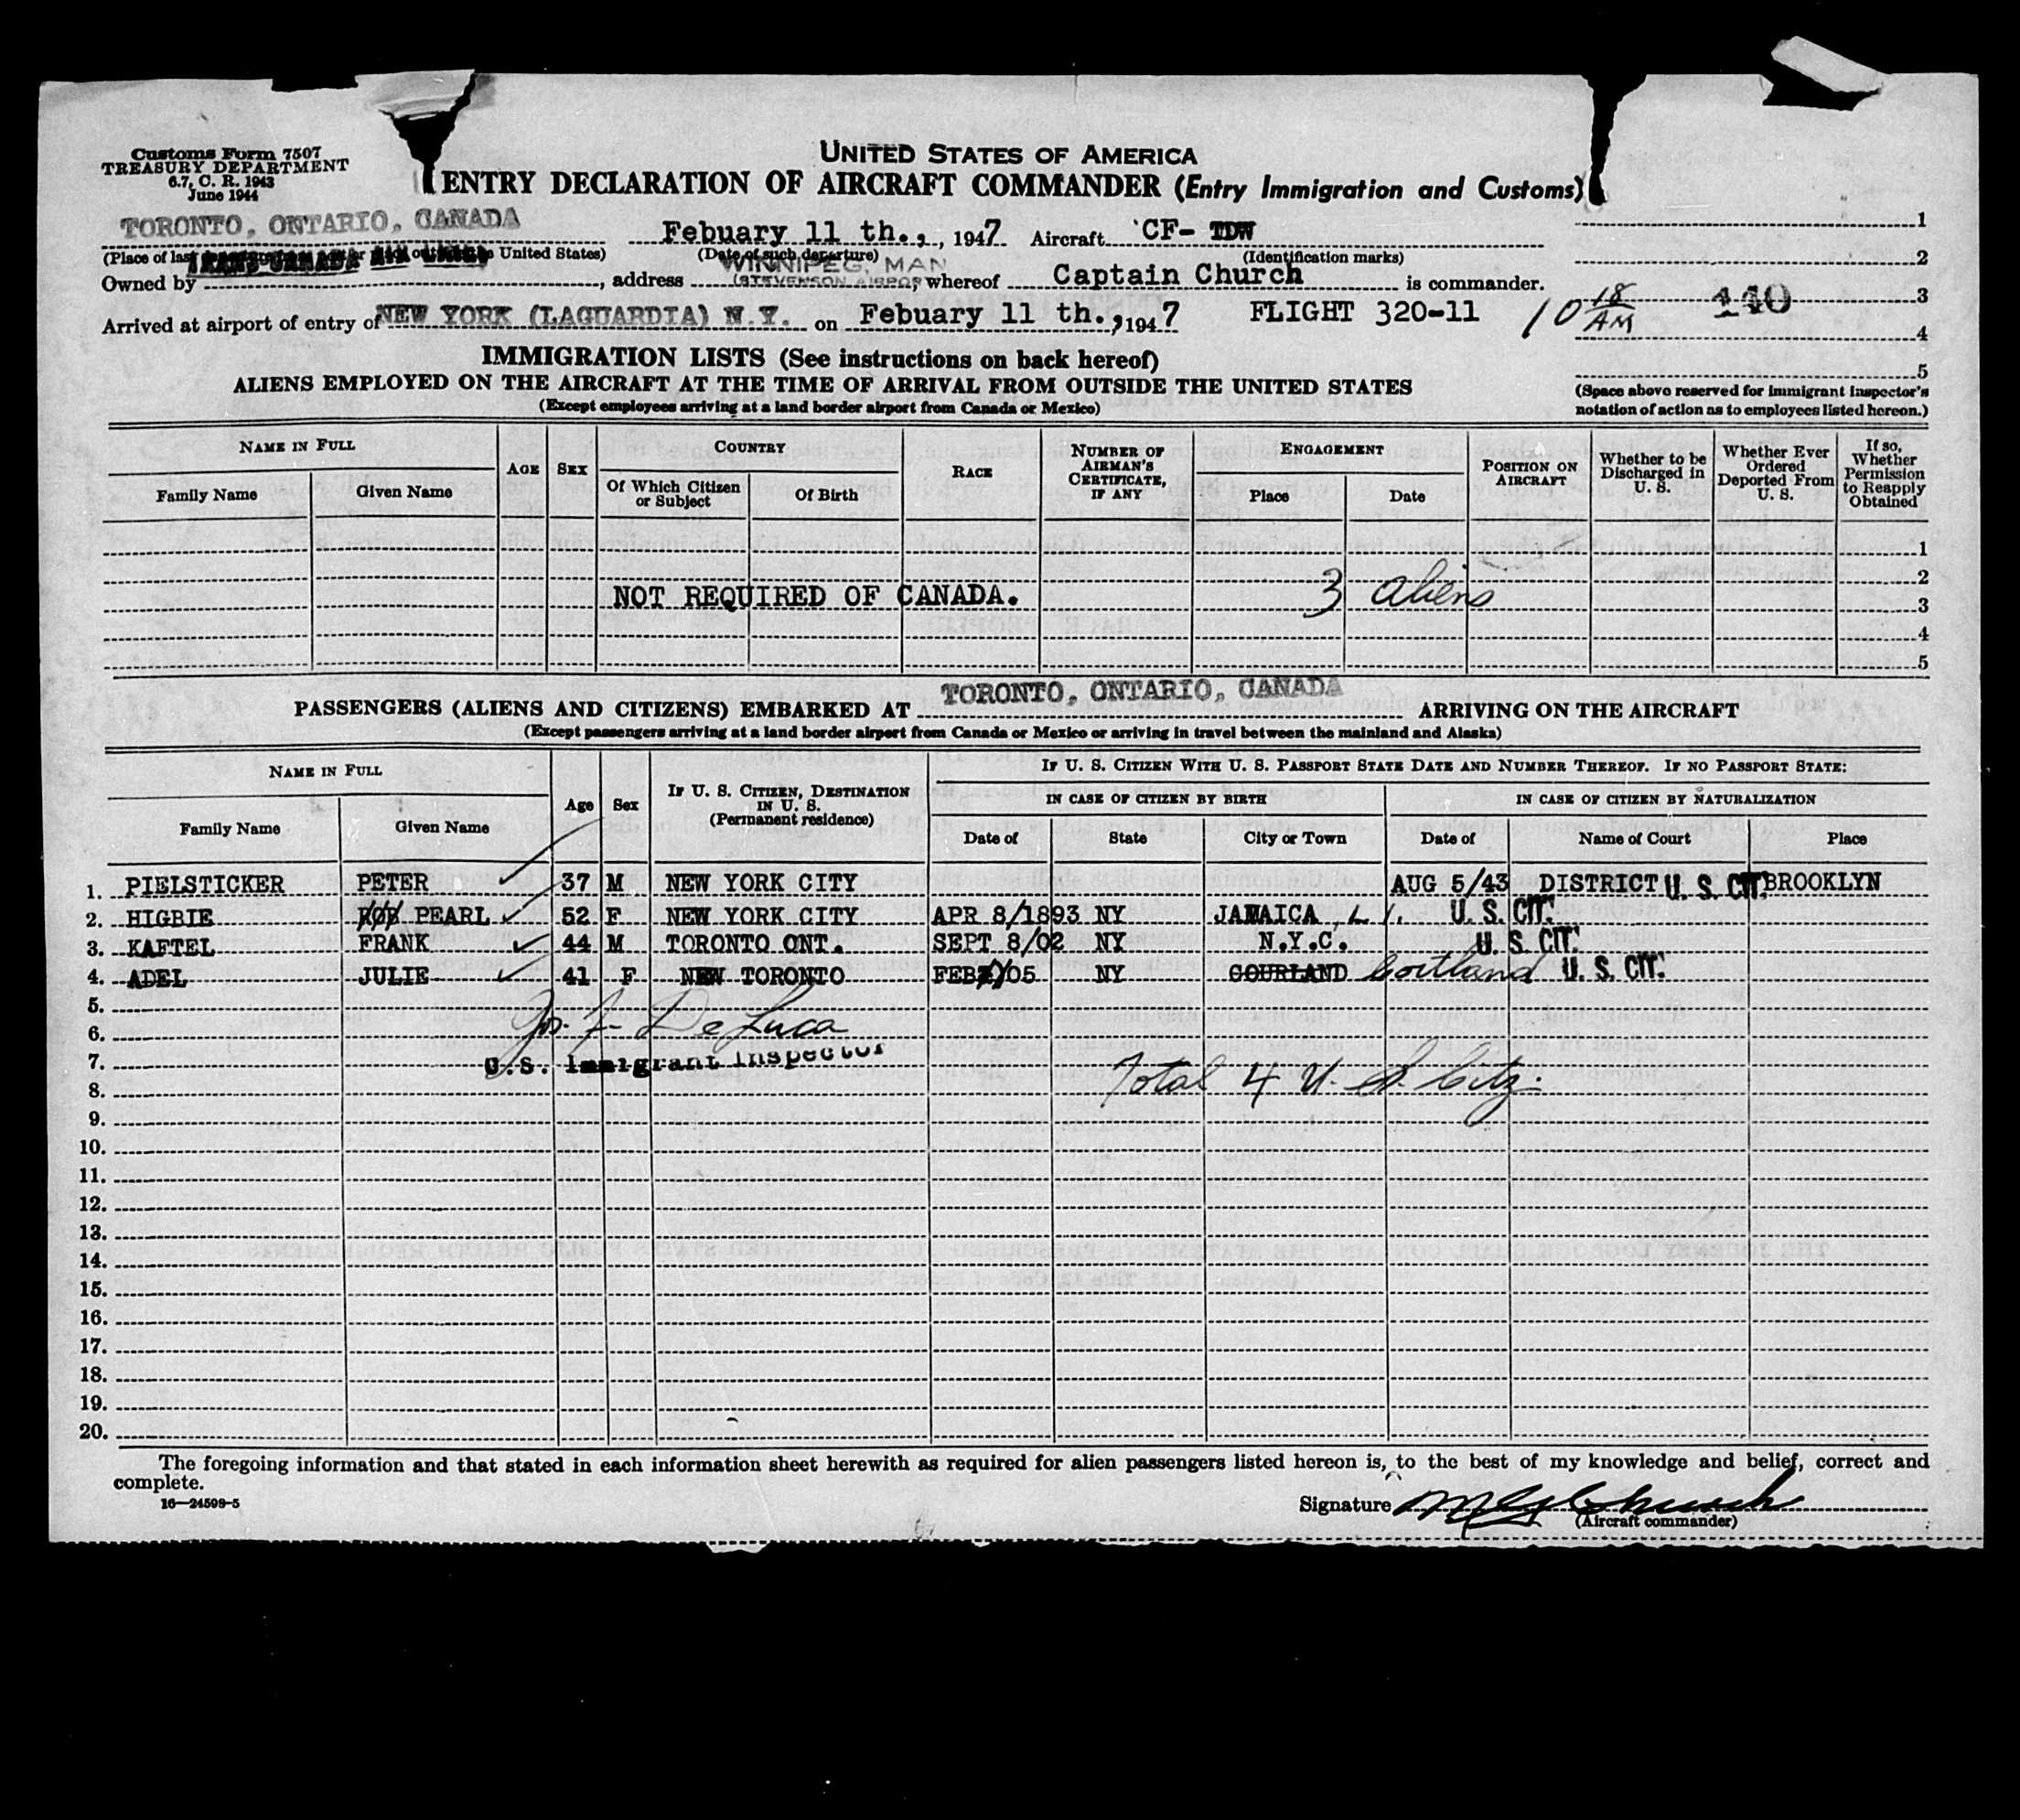 Customs Form 7507
TREASURY DEPARTMENT
6.7, C. R. 1943
June 1944
UNITED STATES OF AMERICA
ENTRY DECLARATION OF AIRCRAFT COMMANDER (Entry Immigration and Customs)
TORONTO, ONTARIO, CANADA Febuary 11 th., , 1947 Aircraft CF- TDW
1
(Place of last United States) (Date of such departure) (Identification marks)
2
TRANS-CANADA AIR LINES WINNIPEG, MAN
Owned by , address (STEVENSON AIRPORT , whereof Captain Church is commander.
3
Arrived at airport of entry of NEW YORK (LAGUARDIA) N.Y. on Febuary 11 th., , 1947 FLIGHT 320-11 10 18 AM 140
4
5
IMMIGRATION LISTS (See instructions on back hereof)
ALIENS EMPLOYED ON THE AIRCRAFT AT THE TIME OF ARRIVAL FROM OUTSIDE THE UNITED STATES
(Except employees arriving at a land border airport from Canada or Mexico)
(Space above reserved for immigrant inspector's
notation of action as to employees listed hereon.)
NAME IN FULL
Family Name Given Name
AGE SEX
COUNTRY
Of Which Citizen or Subject Of Birth
RACE
NUMBER OF AIRMAN'S CERTIFICATE, IF ANY
ENGAGEMENT
Place Date
POSITION ON AIRCRAFT
Whether to be Discharged in U. S.
Whether Ever Ordered Deported From U. S.
If so, Whether Permission to Reapply Obtained
1
2
NOT REQUIRED OF CANADA. 3 aliens 3
4
5
PASSENGERS (ALIENS AND CITIZENS) EMBARKED AT TORONTO, ONTARIO, CANADA ARRIVING ON THE AIRCRAFT
(Except passengers arriving at a land border airport from Canada or Mexico or arriving in travel between the mainland and Alaska)
NAME IN FULL
Family Name Given Name
Age Sex
IF U. S. CITIZEN, DESTINATION IN U. S. (Permanent residence)
IF U. S. CITIZEN WITH U. S. PASSPORT STATE DATE AND NUMBER THEREOF. IF NO PASSPORT STATE:
IN CASE OF CITIZEN BY BIRTH IN CASE OF CITIZEN BY NATURALIZATION
Date of State City or Town Date of Name of Court Place
1. PIELSTICKER PETER 37 M NEW YORK CITY AUG 5/43 DISTRICT U. S. CIT. BROOKLYN
2. HIGBIE PEARL 52 F NEW YORK CITY APR 8/1893 NY JAMAICA, L I. U. S. CIT.
3. KAFTEL FRANK 44 M TORONTO ONT. SEPT 8/02 NY N.Y.C. U. S. CIT.
4. ADEL JULIE 41 F NEW TORONTO FEB /05 NY COURLAND Cortland U. S. CIT.
5.
6. Jos. F. De Luca
7. U.S. Immigrant Inspector
8. Total 4 U. S. Citz.
9.
10.
11.
12.
13.
14.
15.
16.
17.
18.
19.
20.
The foregoing information and that stated in each information sheet herewith as required for alien passengers listed hereon is, to the best of my knowledge and belief, correct and
complete.
16—24598-5
Signature M G Church
(Aircraft commander)